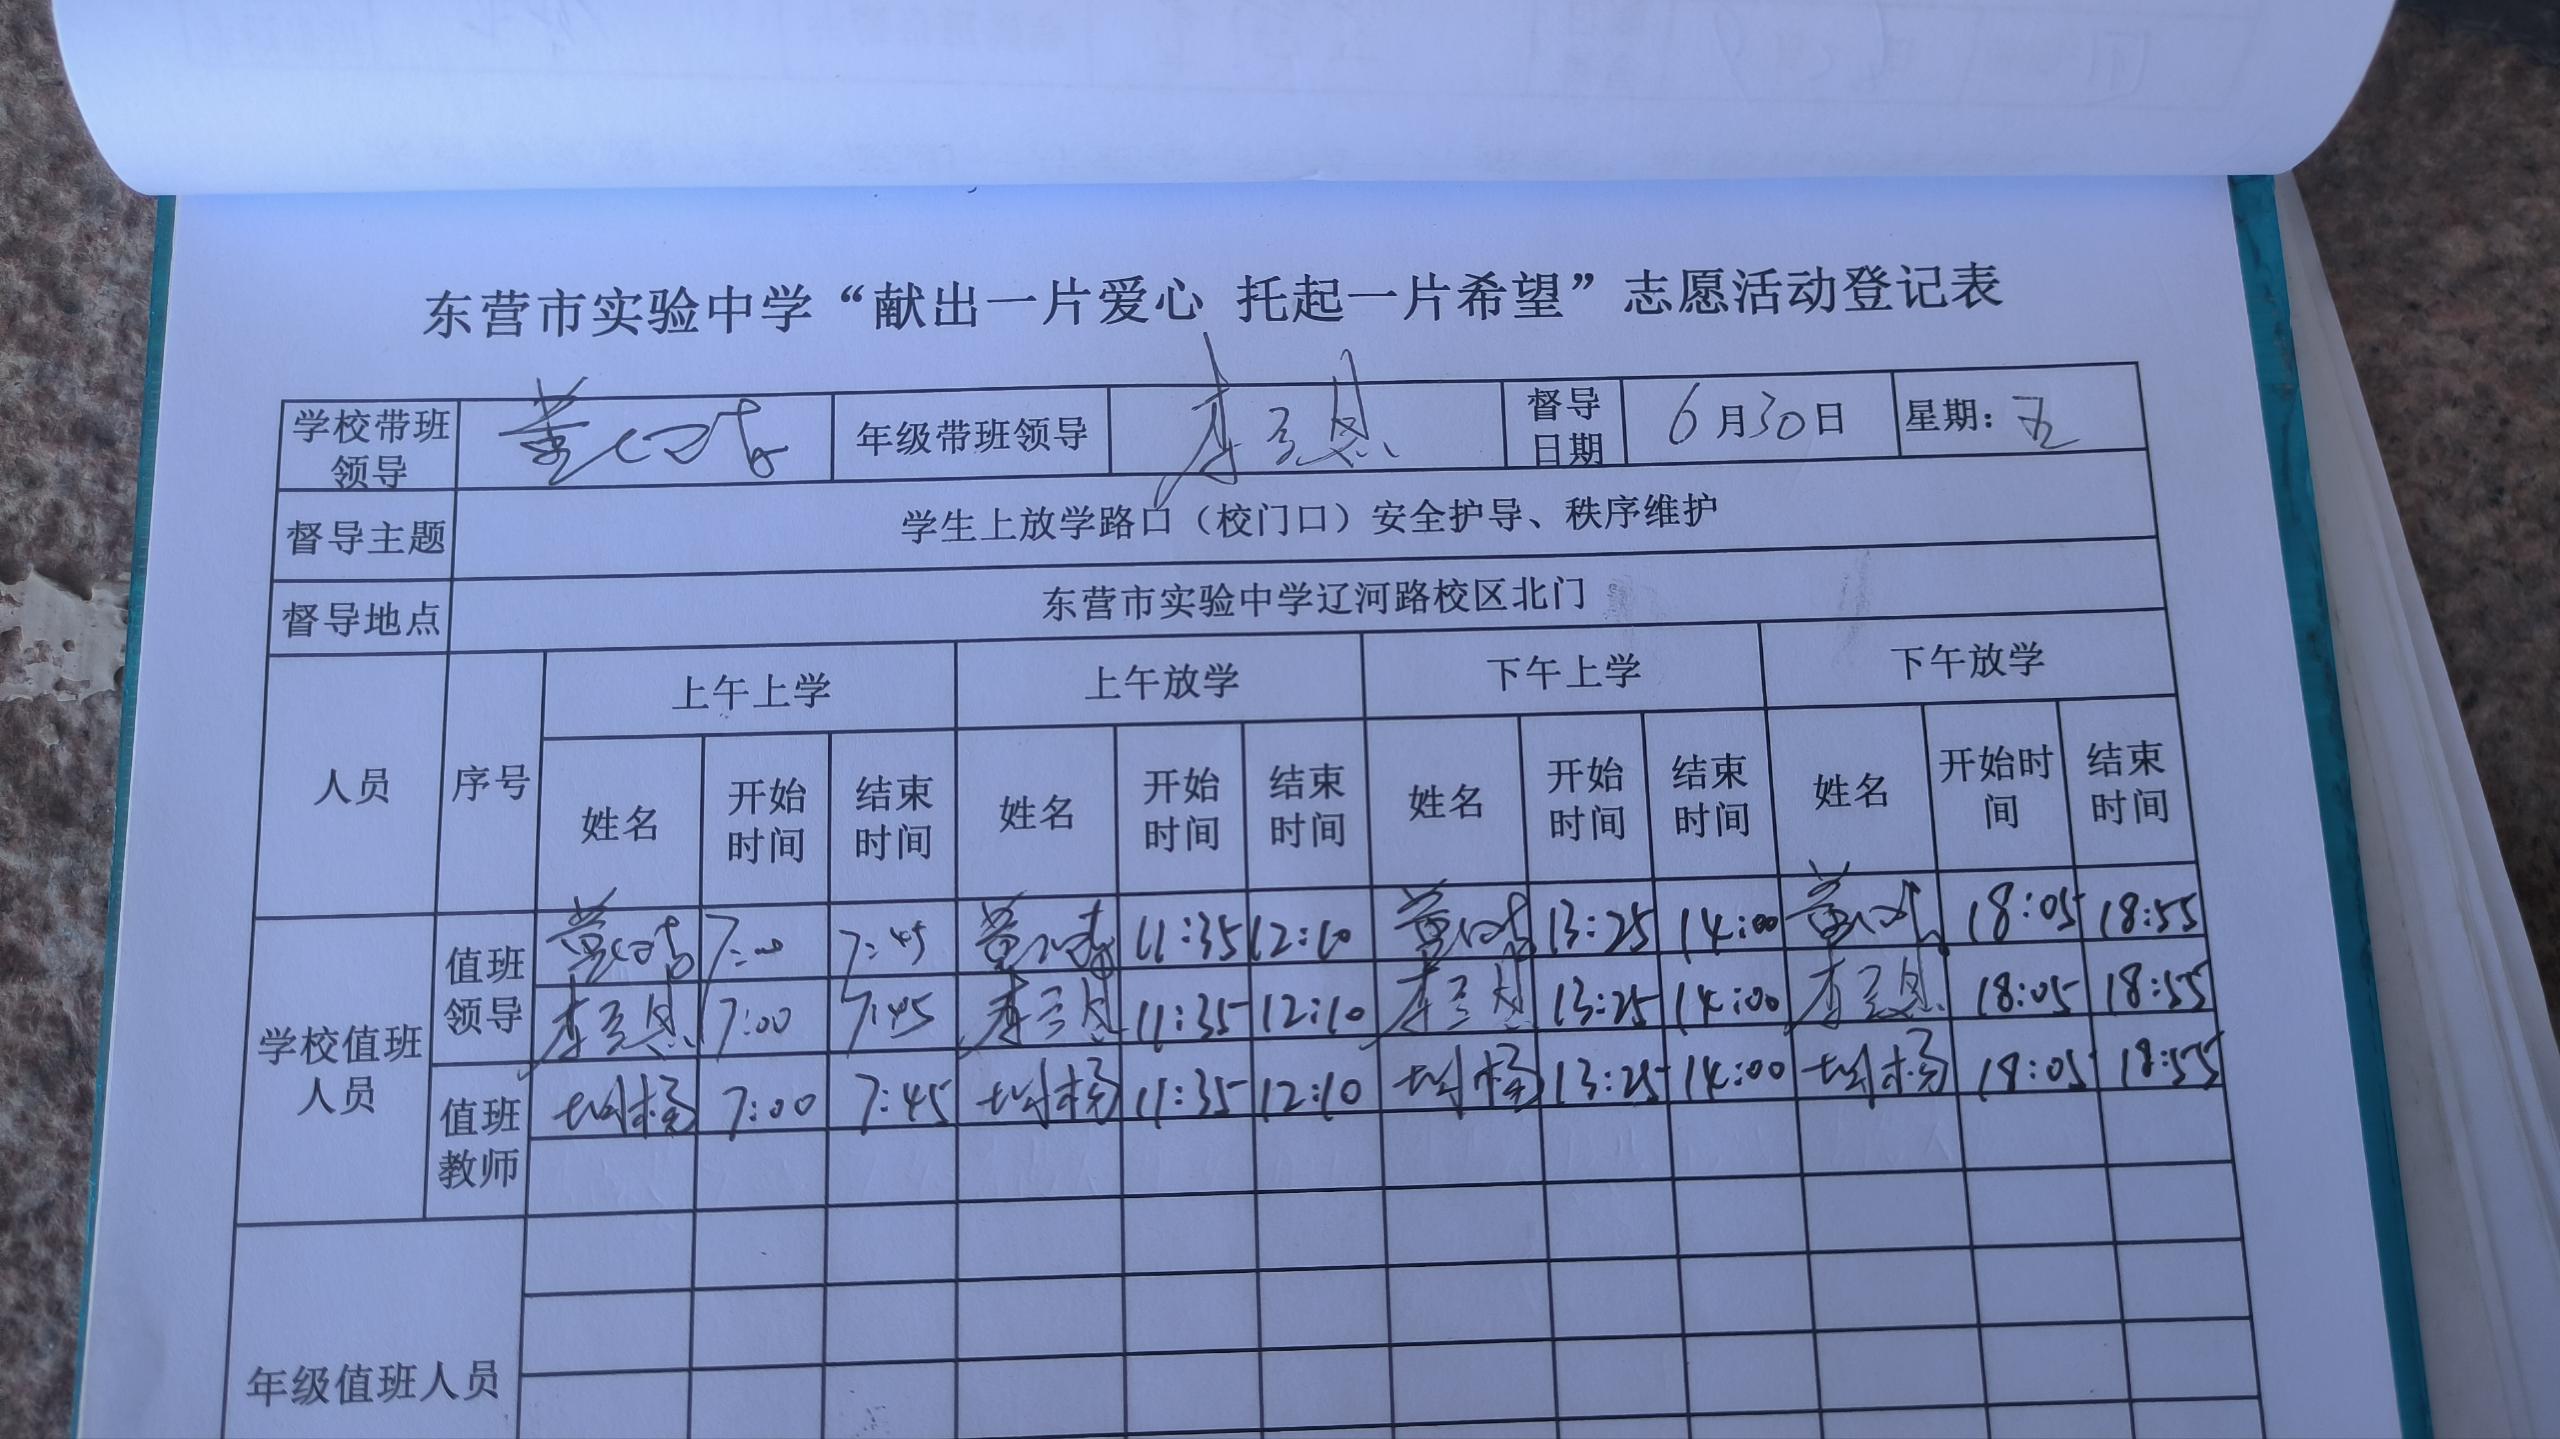 东营市实验中学“献出一片爱心 托起一片希望”志愿活动登记表
学校带班领导 年级带班领导 督导日期 6月30日 星期：五
督导主题 学生上放学路口（校门口）安全护导、秩序维护
督导地点 东营市实验中学辽河路校区北门
人员 序号 上午上学 上午放学 下午上学 下午放学
姓名 开始时间 结束时间 姓名 开始时间 结束时间 姓名 开始时间 结束时间 姓名 开始时间 结束时间
学校值班人员 值班领导 7:00 7:45 11:35 12:10 13:25 14:00 18:05 18:55
7:00 7:45 11:35 12:10 13:25 14:00 18:05 18:55
值班教师 7:00 7:45 11:35 12:10 13:25 14:00 18:05 18:55
年级值班人员